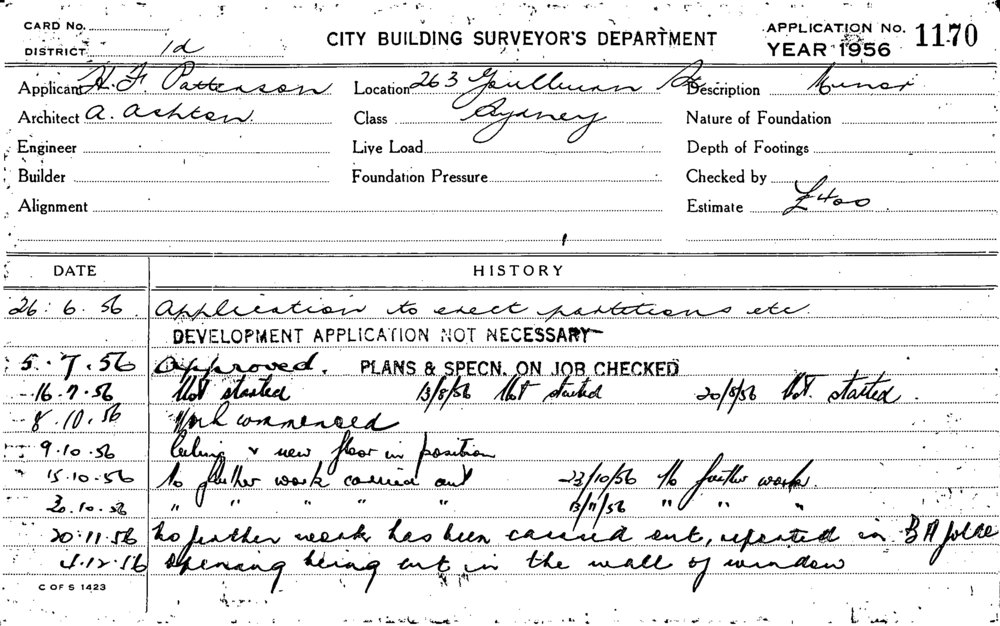 CARD No.
DISTRICT 1d
CITY BUILDING SURVEYOR'S DEPARTMENT
APPLICATION No. 1170
YEAR 1956
Applicant H. F. Patterson Location 263 Goulburn St Description Minor
Architect A. Ashton Class Sydney Nature of Foundation
Engineer Live Load Depth of Footings
Builder Foundation Pressure Checked by
Alignment Estimate £400
DATE HISTORY
26. 6. 56 Application to erect partitions etc.
DEVELOPMENT APPLICATION NOT NECESSARY
5. 7. 56 Approved. PLANS & SPECN. ON JOB CHECKED
16.7.56 Not started 13/8/56 Not started 20/8/56 Not started.
8.10.56 Work commenced
9.10.56 Ceiling & new floor in position
15.10.56 No further work carried out 23/10/56 No further work.
10.56 " " " " " 13/11/56 " " "
20.11.56 No further work has been carried out, reported in
4.12.56 Opening being cut in the wall of window
C OF S 1423